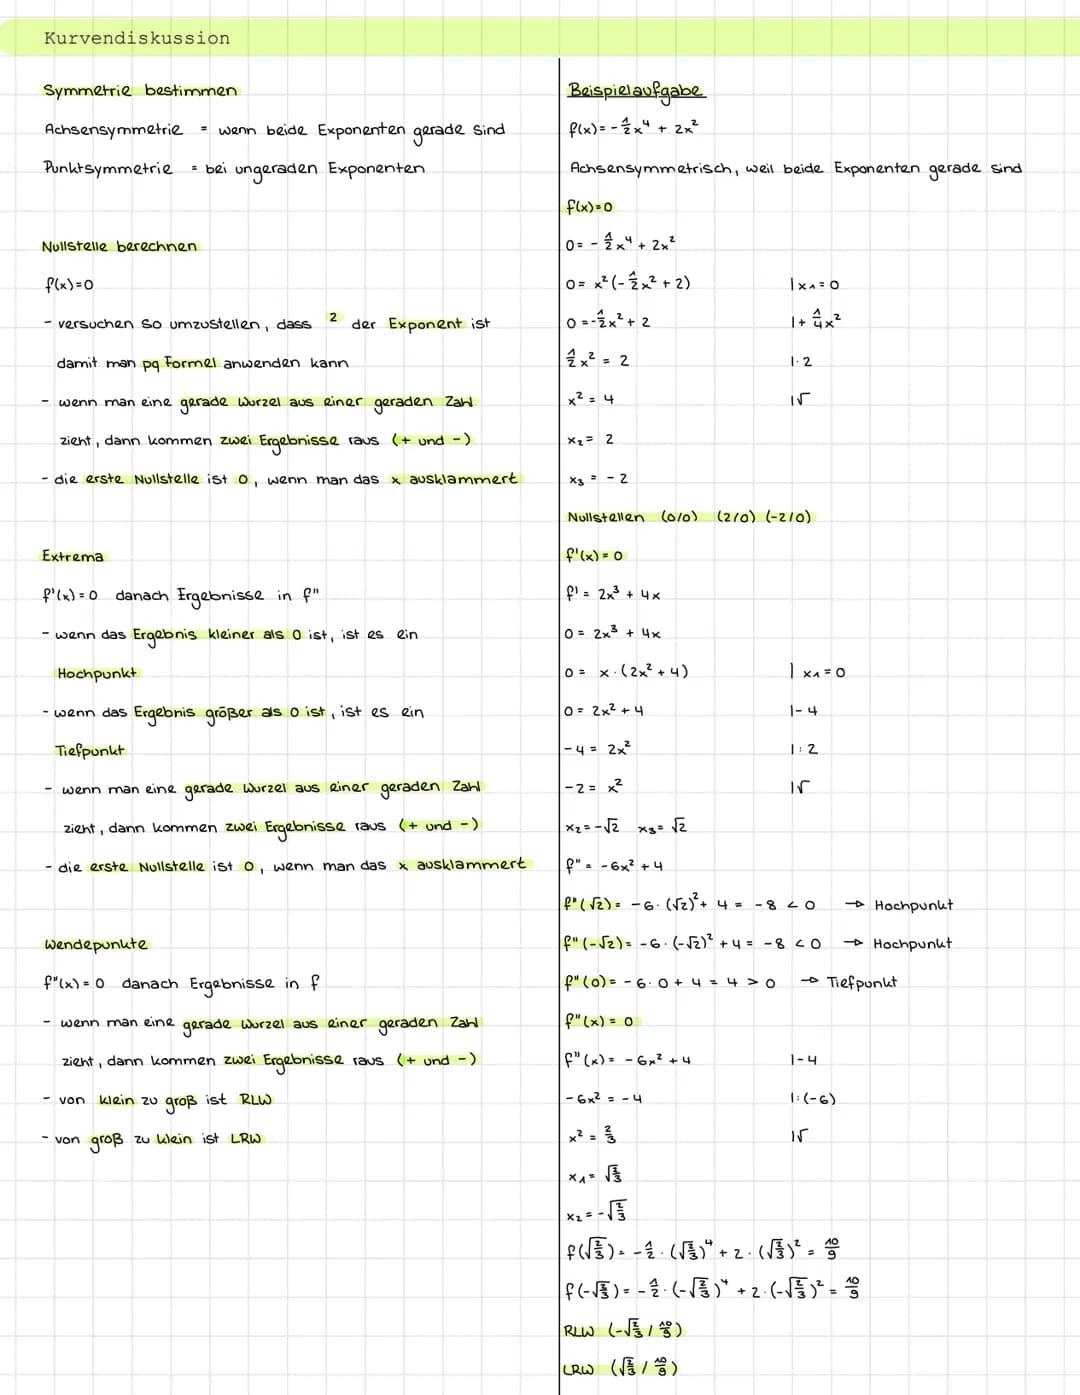 Kurvendiskussion
Symmetrie bestimmen
Achsensymmetrie = wenn beide Exponenten gerade sind
Punktsymmetrie = bei ungeraden Exponenten
Nullstelle berechnen
f(x)=0
- versuchen so umzustellen, dass ² der Exponent ist
damit man pq Formel anwenden kann
- wenn man eine gerade Wurzel aus einer geraden Zahl
zieht, dann kommen zwei Ergebnisse raus (+ und -)
- die erste Nullstelle ist 0, wenn man das x ausklammert
Extrema
f'(x)=0 danach Ergebnisse in f"
- wenn das Ergebnis kleiner als 0 ist, ist es ein
Hochpunkt
- wenn das Ergebnis größer als 0 ist, ist es ein
Tiefpunkt
- wenn man eine gerade Wurzel aus einer geraden Zahl
zieht, dann kommen zwei Ergebnisse raus (+ und -)
- die erste Nullstelle ist 0, wenn man das x ausklammert
Wendepunkte
f"(x)=0 danach Ergebnisse in f
- wenn man eine gerade Wurzel aus einer geraden Zahl
zieht, dann kommen zwei Ergebnisse raus (+ und -)
- von klein zu groß ist RLW
- von groß zu klein ist LRW
Beispielaufgabe
f(x)= -½x⁴ + 2x²
Achsensymmetrisch, weil beide Exponenten gerade sind
f(x)=0
0= -½x⁴ + 2x²
0= x²(-½x² + 2) |x₁=0
0=-½x² + 2 |+ ¼x²
½x² = 2 |·2
x² = 4 |√
x₂= 2
x₃ = -2
Nullstellen (0/0) (2/0) (-2/0)
f'(x)=0
f' = 2x³ + 4x
0= 2x³ + 4x
0= x·(2x² + 4) | x₁=0
0= 2x² + 4 |-4
-4= 2x² |:2
-2= x² |√
x₂=-√2 x₃=√2
f" = -6x² + 4
f"(√2)= -6·(√2)² + 4 = -8 < 0 → Hochpunkt
f"(-√2)= -6·(-√2)² + 4 = -8 < 0 → Hochpunkt
f"(0)= -6·0 + 4 = 4 > 0 → Tiefpunkt
f"(x)=0
f"(x)= -6x² + 4 |-4
-6x² = -4 |:(-6)
x² = ⅔ |√
x₁= √⅔
x₂= -√⅔
f(√⅔)= -½·(√⅔)⁴ + 2·(√⅔)² = 10/9
f(-√⅔)= -½·(-√⅔)⁴ + 2·(-√⅔)² = 10/9
RLW (-√⅔ / 10/9)
LRW (√⅔ / 10/9)